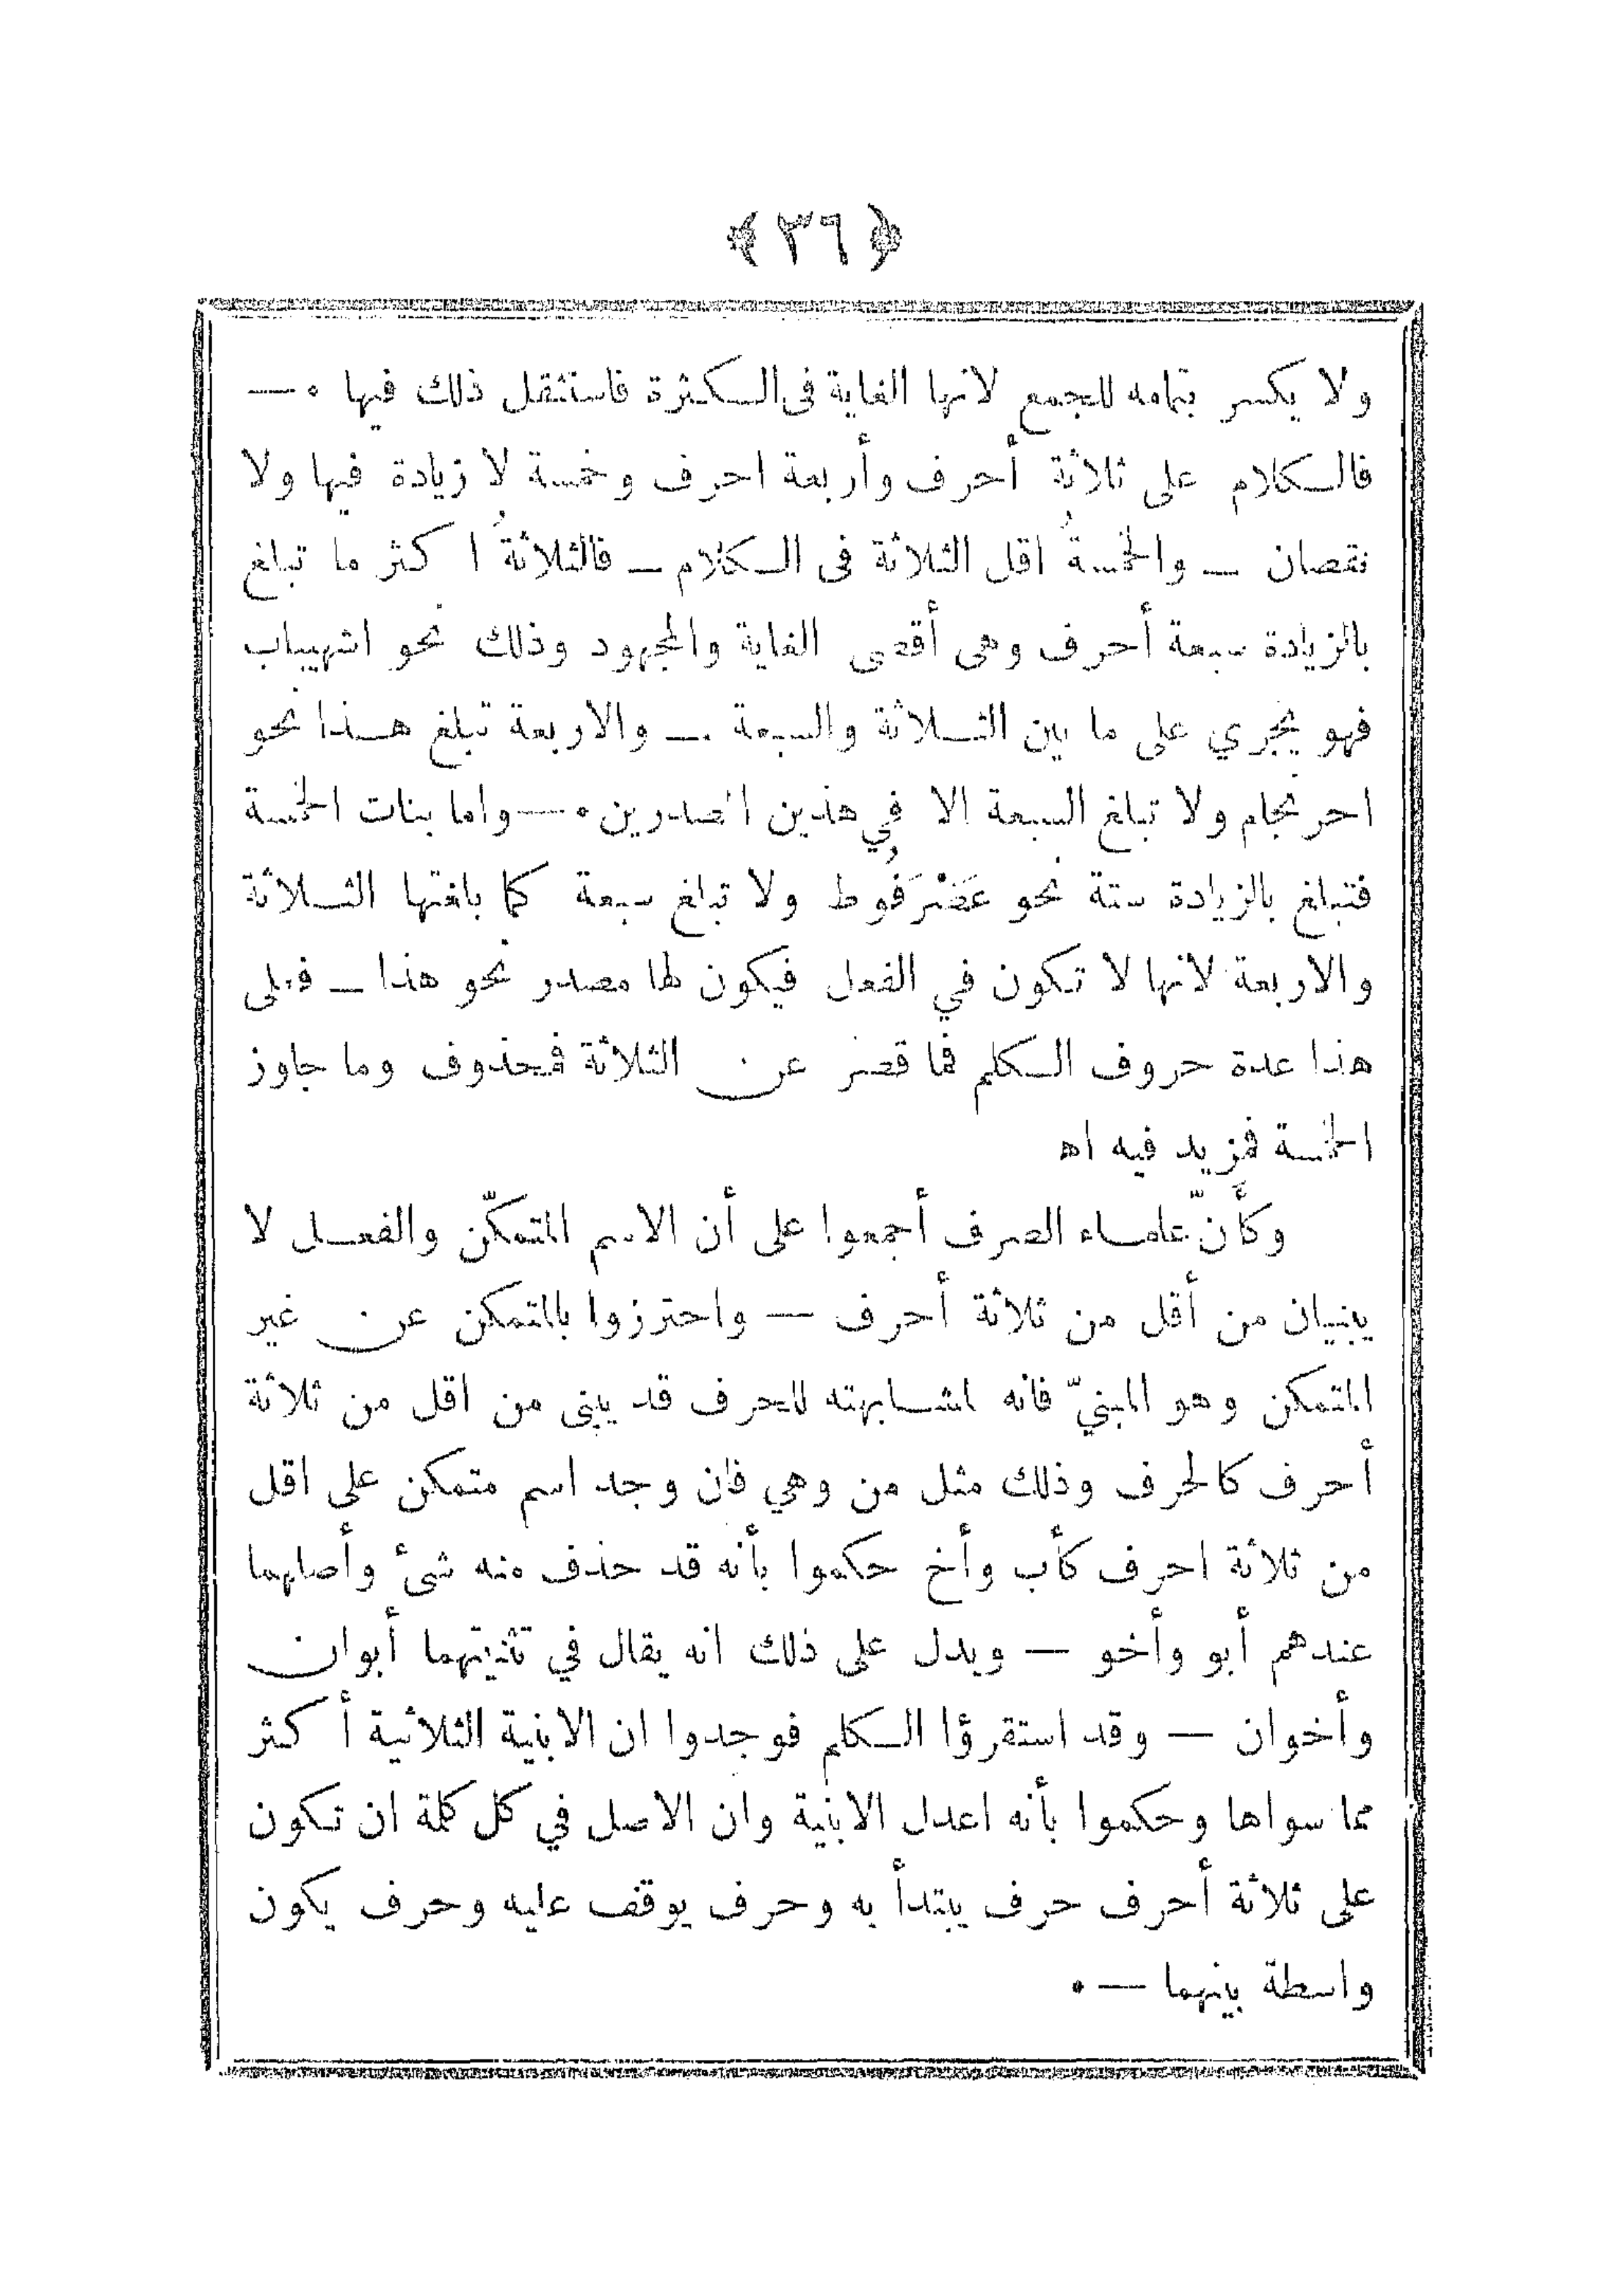 ﴿ ٣٦ ﴾
ولا يكسر بتمامه للجمع لانها الغاية فى الكثرة فاستثقل ذلك فيها ٠ —
فالكلام على ثلاثة أحرف وأربعة احرف وخمسة لا زيادة فيها ولا
نقصان — والخمسةُ اقل الثلاثة فى الكلام — فالثلاثةُ اكثر ما تبلغ
بالزيادة سبعة أحرف وهى أقصى الغاية والمجهود وذلك نحو اشهيباب
فهو يجري على ما بين الثلاثة والسبعة — والاربعة تبلغ هذا نحو
احرنجام ولا تبلغ السبعة الا في هذين المصدرين ٠ — واما بنات الخمسة
فتبلغ بالزيادة ستة نحو عَضْرَفُوط ولا تبلغ سبعة كما بلغتها الثلاثة
والاربعة لانها لا تكون في الفعل فيكون لها مصدر نحو هذا — فعلى
هذا عدة حروف الكلم فما قصر عن الثلاثة فمحذوف وما جاوز
الخمسة فمزيد فيه اه
وكأنّ علماء الصرف أجمعوا على أن الاسم المتمكّن والفعل لا
يبنيان من أقل من ثلاثة أحرف — واحترزوا بالمتمكن عن غير
المتمكن وهو المبنيّ فانه لمشابهته للحرف قد يبنى من اقل من ثلاثة
أحرف كالحرف وذلك مثل من وهي فان وجد اسم متمكن على اقل
من ثلاثة احرف كأب وأخ حكموا بأنه قد حذف منه شئ وأصلهما
عندهم أبو وأخو — ويدل على ذلك انه يقال في تثنيتهما أبوان
وأخوان — وقد استقرؤا الكلم فوجدوا ان الابنية الثلاثية أكثر
مما سواها وحكموا بأنه اعدل الابنية وان الاصل في كل كلمة ان تكون
على ثلاثة أحرف حرف يبتدأ به وحرف يوقف عليه وحرف يكون
واسطة بينهما — ٠